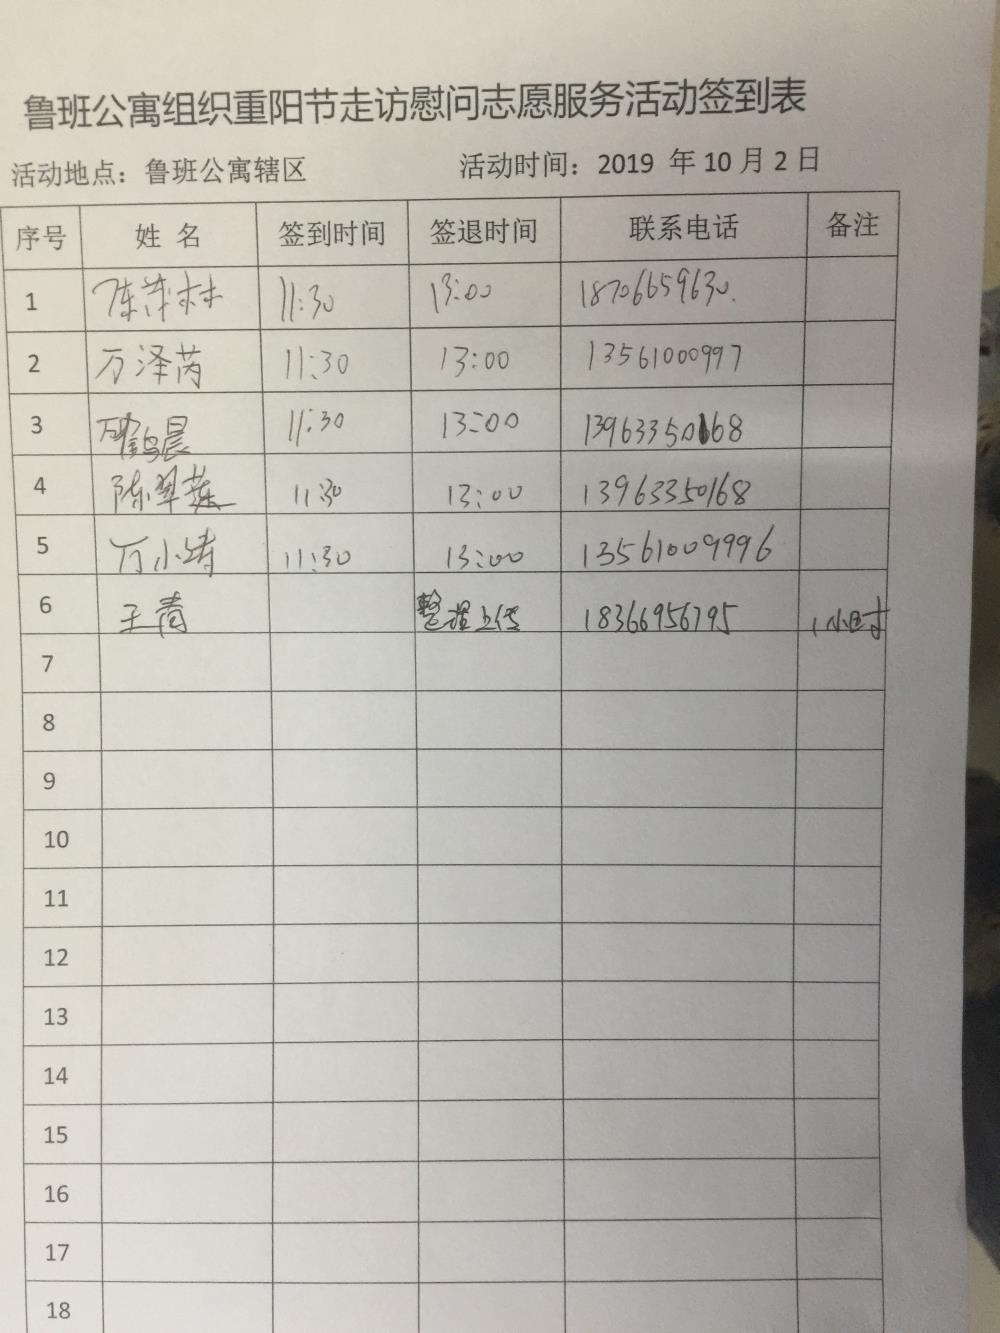 鲁班公寓组织重阳节走访慰问志愿服务活动签到表
活动地点：鲁班公寓辖区 活动时间：2019 年 10 月 2 日
序号 姓 名 签到时间 签退时间 联系电话 备注
1 陈茂林 11:30 13:00 18706659630.
2 万泽芮 11:30 13:00 13561000997
3 晨 11:30 13:00 13963350168
4 陈翠 11:30 13:00 13963350168
5 万小涛 11:30 13:00 13561009996
6 王青 整理上传 18366956795 1小时
7
8
9
10
11
12
13
14
15
16
17
18